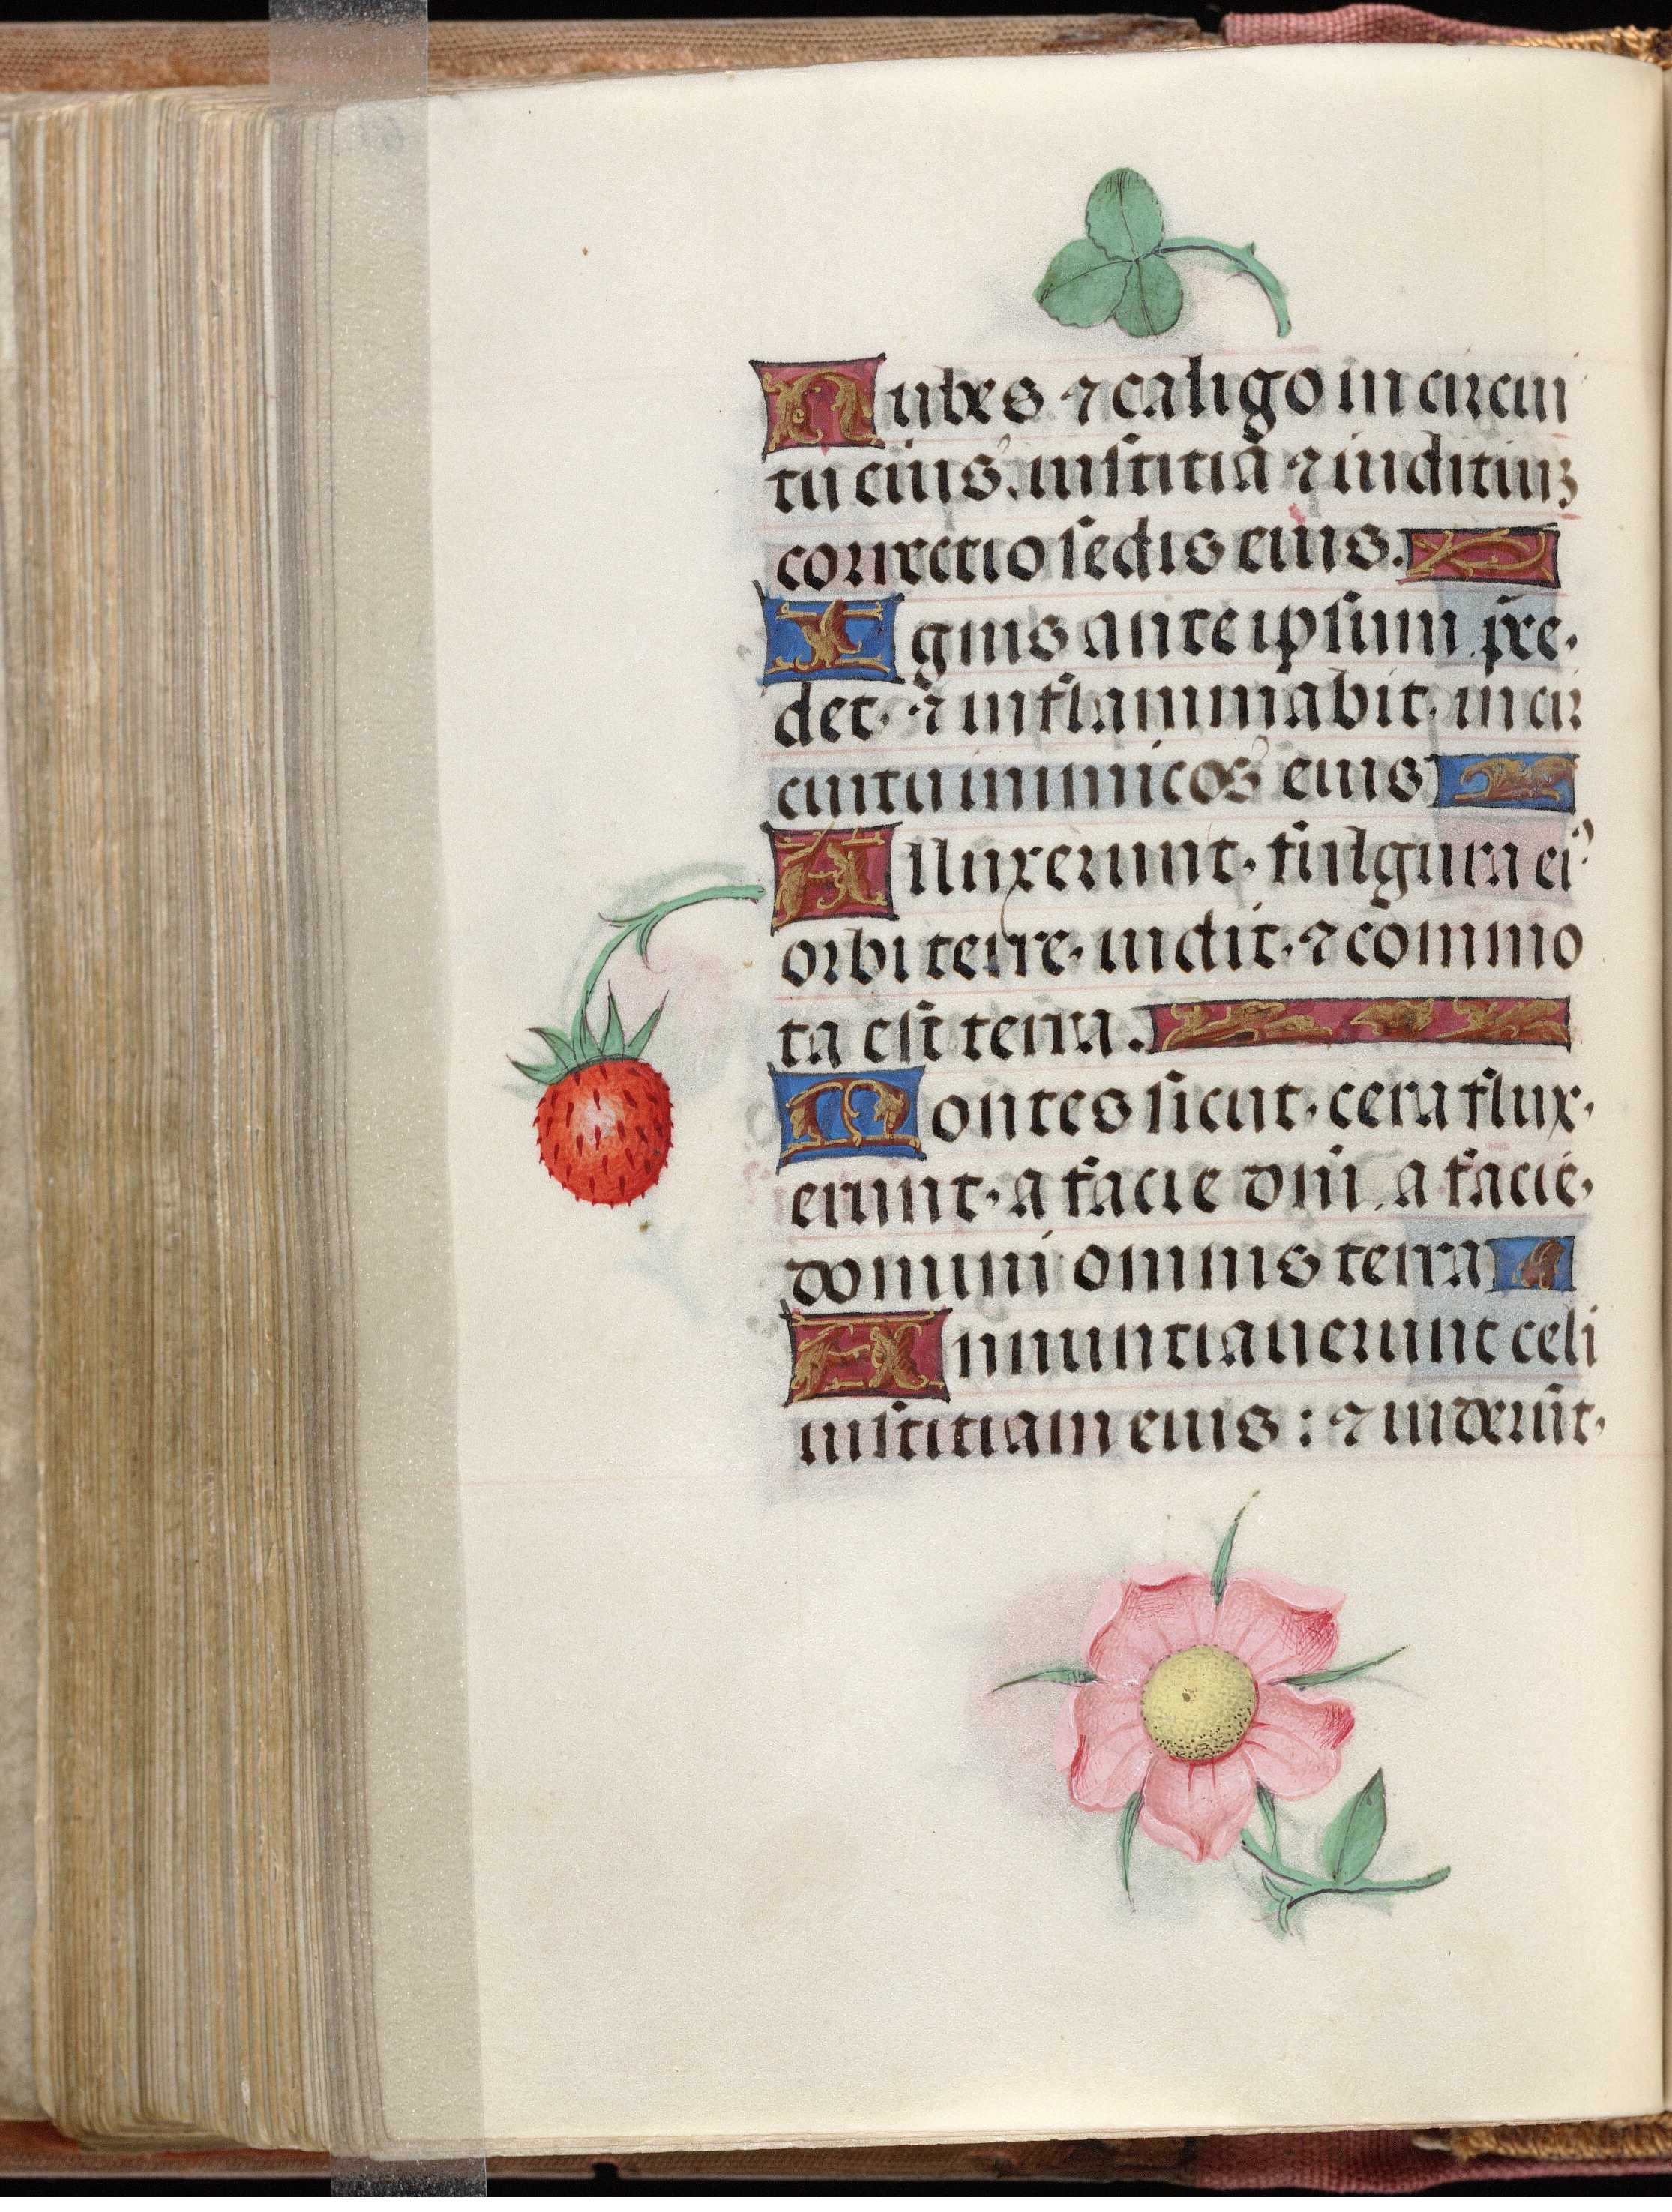 Nubes ⁊ caligo in circui
tu eius. iustitia ⁊ iuditiuʒ
correctio sedis eius.
Ignis ante ipsum pre
det. ⁊ inflammabit. in cir
cuitu inimicos eius
Alluxerunt. fulgura ei⁹
orbi terre. uidit. ⁊ commo
ta est terra.
Montes sicut. cera flux.
erunt. a facie dni. a facie.
domini omnis terra
Annuntiauerunt celi
iustitiam eius : ⁊ uiderūt.